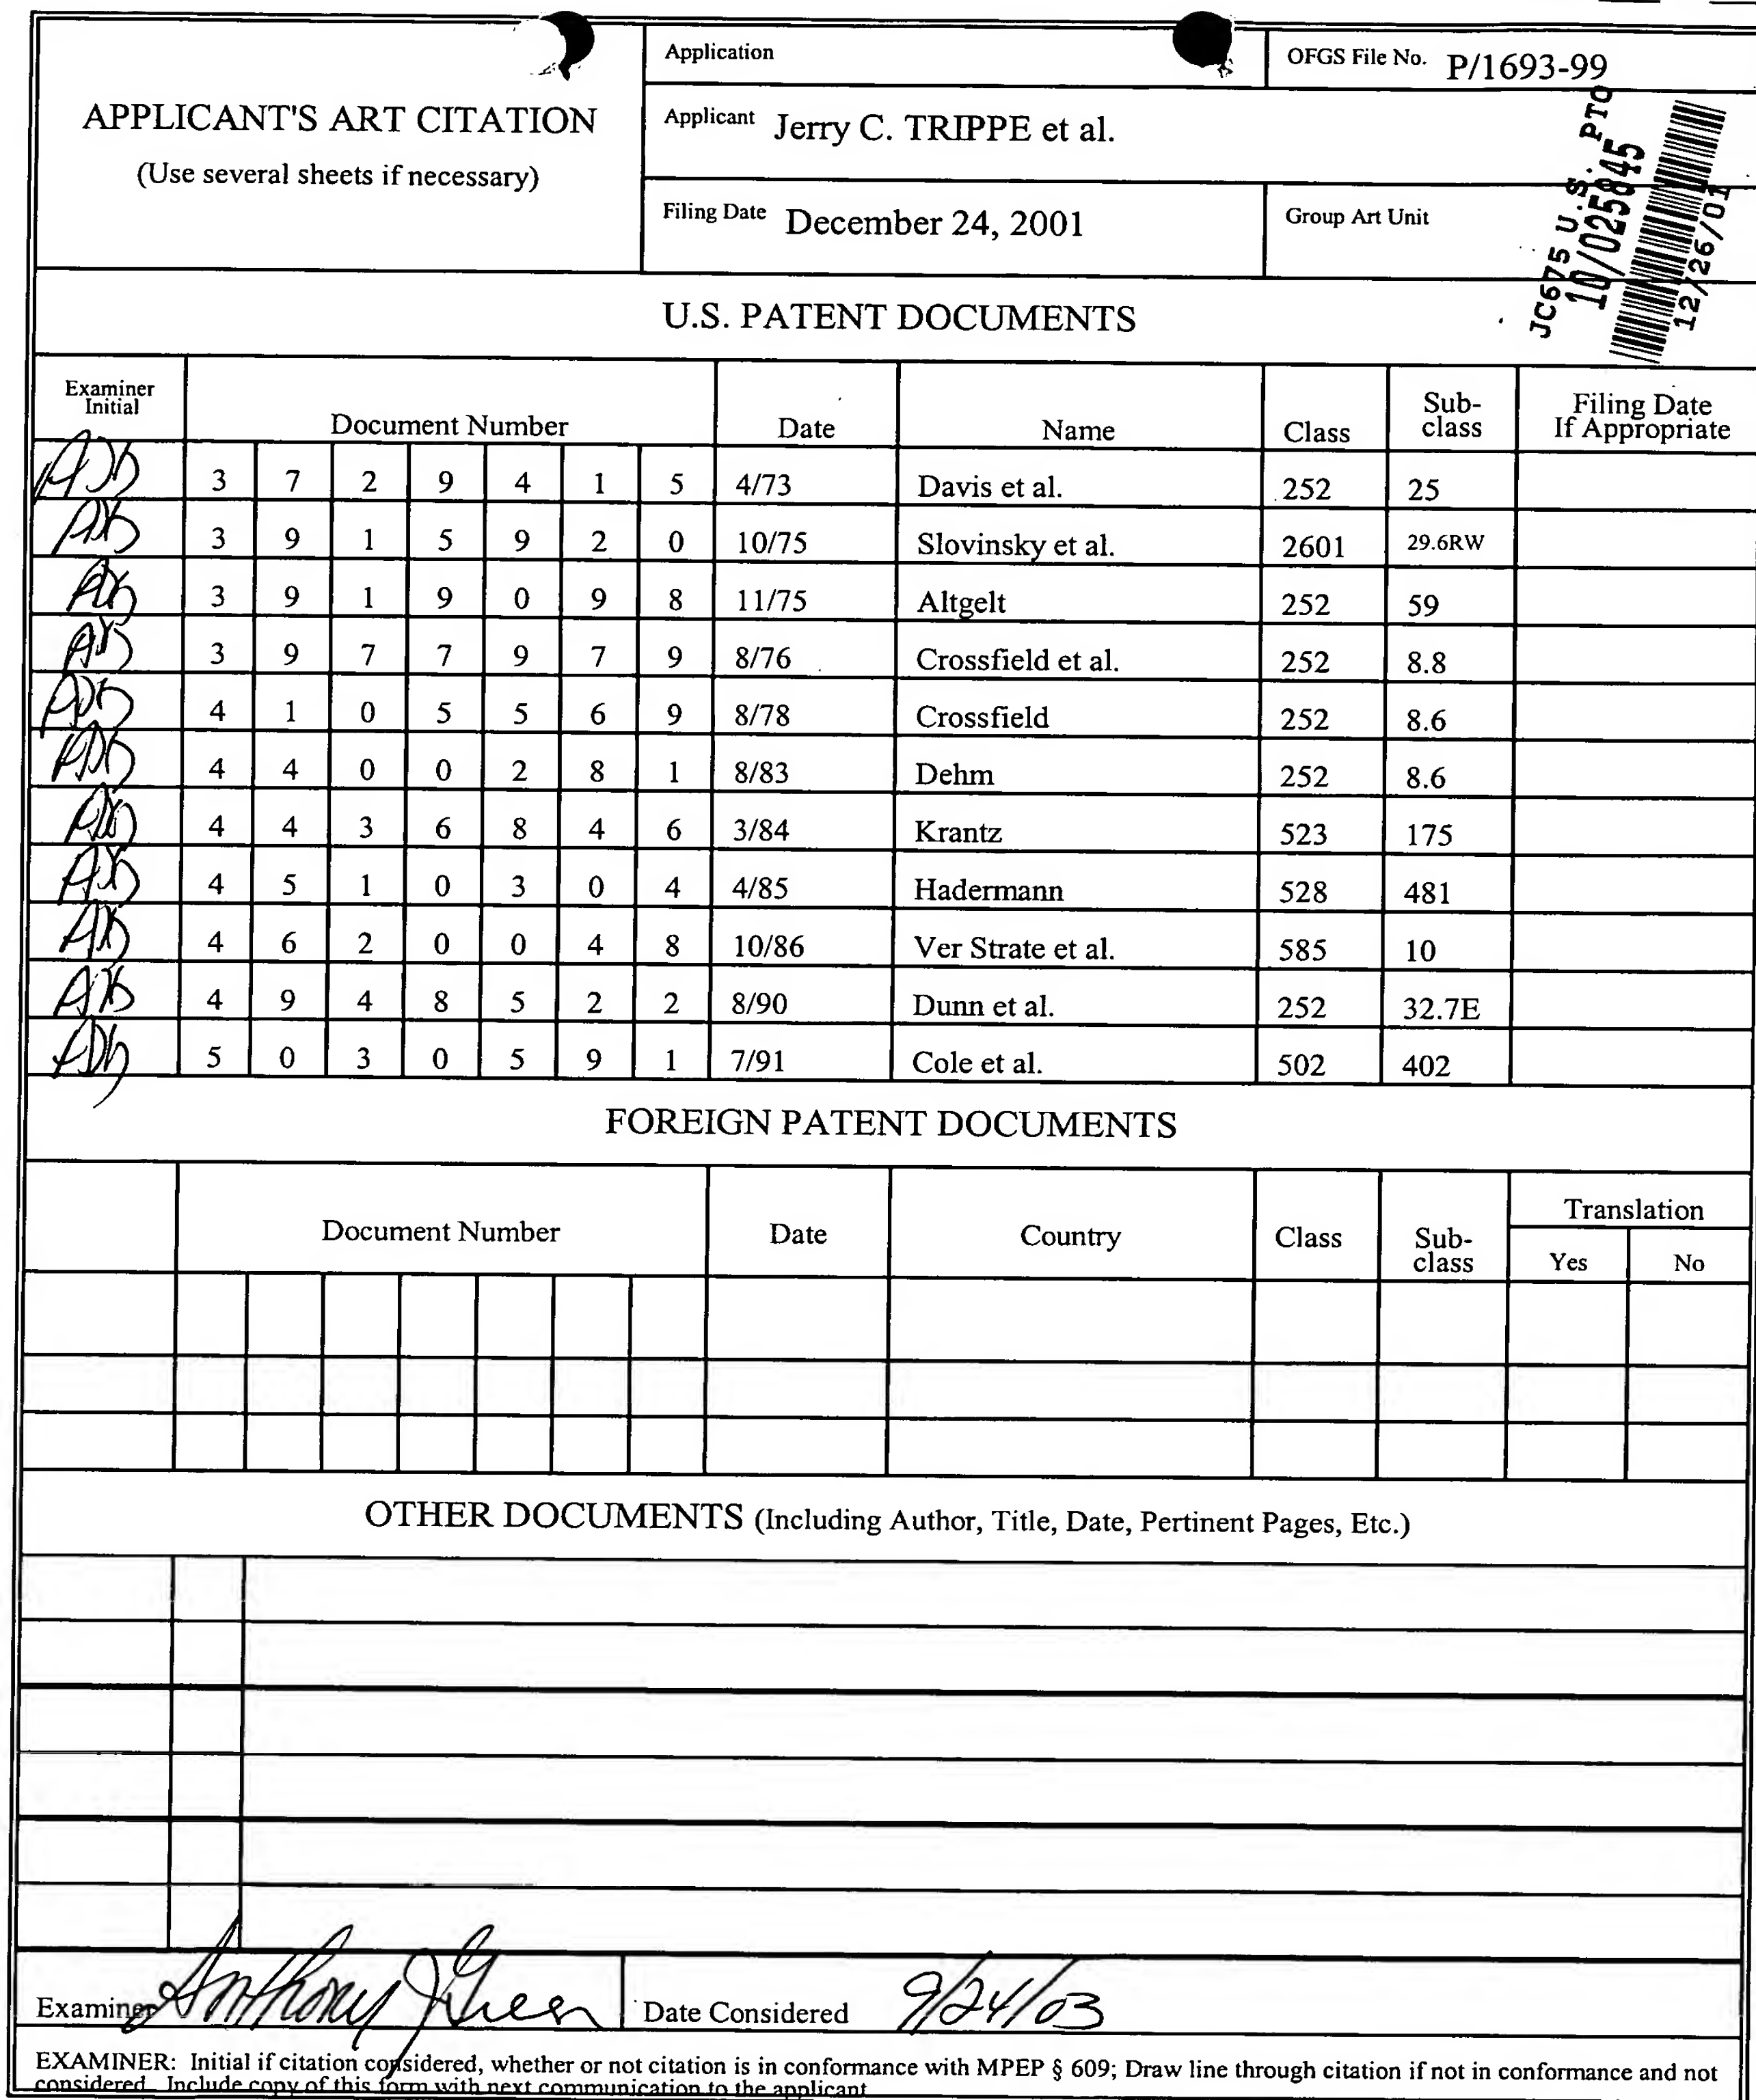 APPLICANT'S ART CITATION
(Use several sheets if necessary)
Application
OFGS File No. P/1693-99
Applicant Jerry C. TRIPPE et al.
Filing Date December 24, 2001
Group Art Unit
JC675 U.S. PTO
10/025845
12/26/01
U.S. PATENT DOCUMENTS
Examiner Initial Document Number Date Name Class Sub-class Filing Date If Appropriate
3 7 2 9 4 1 5 4/73 Davis et al. 252 25
3 9 1 5 9 2 0 10/75 Slovinsky et al. 2601 29.6RW
3 9 1 9 0 9 8 11/75 Altgelt 252 59
3 9 7 7 9 7 9 8/76 Crossfield et al. 252 8.8
4 1 0 5 5 6 9 8/78 Crossfield 252 8.6
4 4 0 0 2 8 1 8/83 Dehm 252 8.6
4 4 3 6 8 4 6 3/84 Krantz 523 175
4 5 1 0 3 0 4 4/85 Hadermann 528 481
4 6 2 0 0 4 8 10/86 Ver Strate et al. 585 10
4 9 4 8 5 2 2 8/90 Dunn et al. 252 32.7E
5 0 3 0 5 9 1 7/91 Cole et al. 502 402
FOREIGN PATENT DOCUMENTS
Document Number Date Country Class Sub-class Translation
Yes No
OTHER DOCUMENTS (Including Author, Title, Date, Pertinent Pages, Etc.)
Examiner Anthony J Green Date Considered 9/24/03
EXAMINER: Initial if citation considered, whether or not citation is in conformance with MPEP § 609; Draw line through citation if not in conformance and not
considered. Include copy of this form with next communication to the applicant